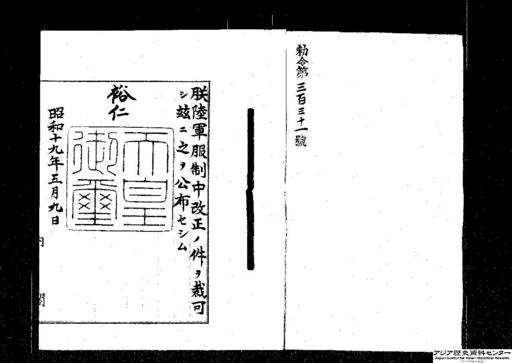 勅令第三百三十一號
朕陸軍服制中改正ノ件ヲ裁可
シ玆ニ之ヲ公布セシム
裕仁
天皇御璽
昭和十九年五月九日
内閣
アジア歴史資料センター
Japan Center for Asian Historical Records